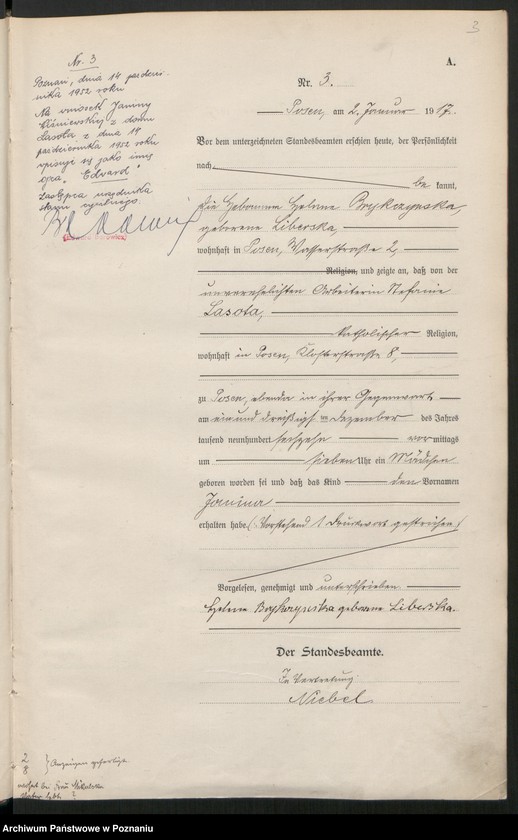 3
A.
Nr. 3
Poznań, dnia 14 paździer-
nika 1952 roku
Na wniosek Janiny
Wiśniewskiej z domu
Lasota z dnia 14
października 1952 roku
wpisuje się jako imię
ojca "Edward"
Zastępca urzędnika
stanu cywilnego.
Nr. 3.
Posen, am 2. Januar 1917.
Vor dem unterzeichneten Standesbeamten erschien heute, der Persönlichkeit
nach
be kannt,
die Hebamme Helene Brykczynska,
geborene Liberska,
wohnhaft in Posen, Wasserstraße 2,
Religion, und zeigte an, daß von der
unverehelichten Arbeiterin Stefanie
Lasota,
katholischer Religion,
wohnhaft in Posen, Klosterstraße 8,
zu Posen, ebenda in ihrer Gegenwart
am ein und dreißigsten Dezember des Jahres
tausend neunhundert sechzehn vor mittags
um sieben Uhr ein Mädchen
geboren worden sei und daß das Kind den Vornamen
Janina
erhalten habe. (Vorstehend 1 Druckwort gestrichen.)
Vorgelesen, genehmigt und unterschrieben
Helene Brykczynska geborene Liberska.
Der Standesbeamte.
In Vertretung
Niebel
2
8 } Anzeigen gefertigt
bei Frau
Archiwum Państwowe w Poznaniu